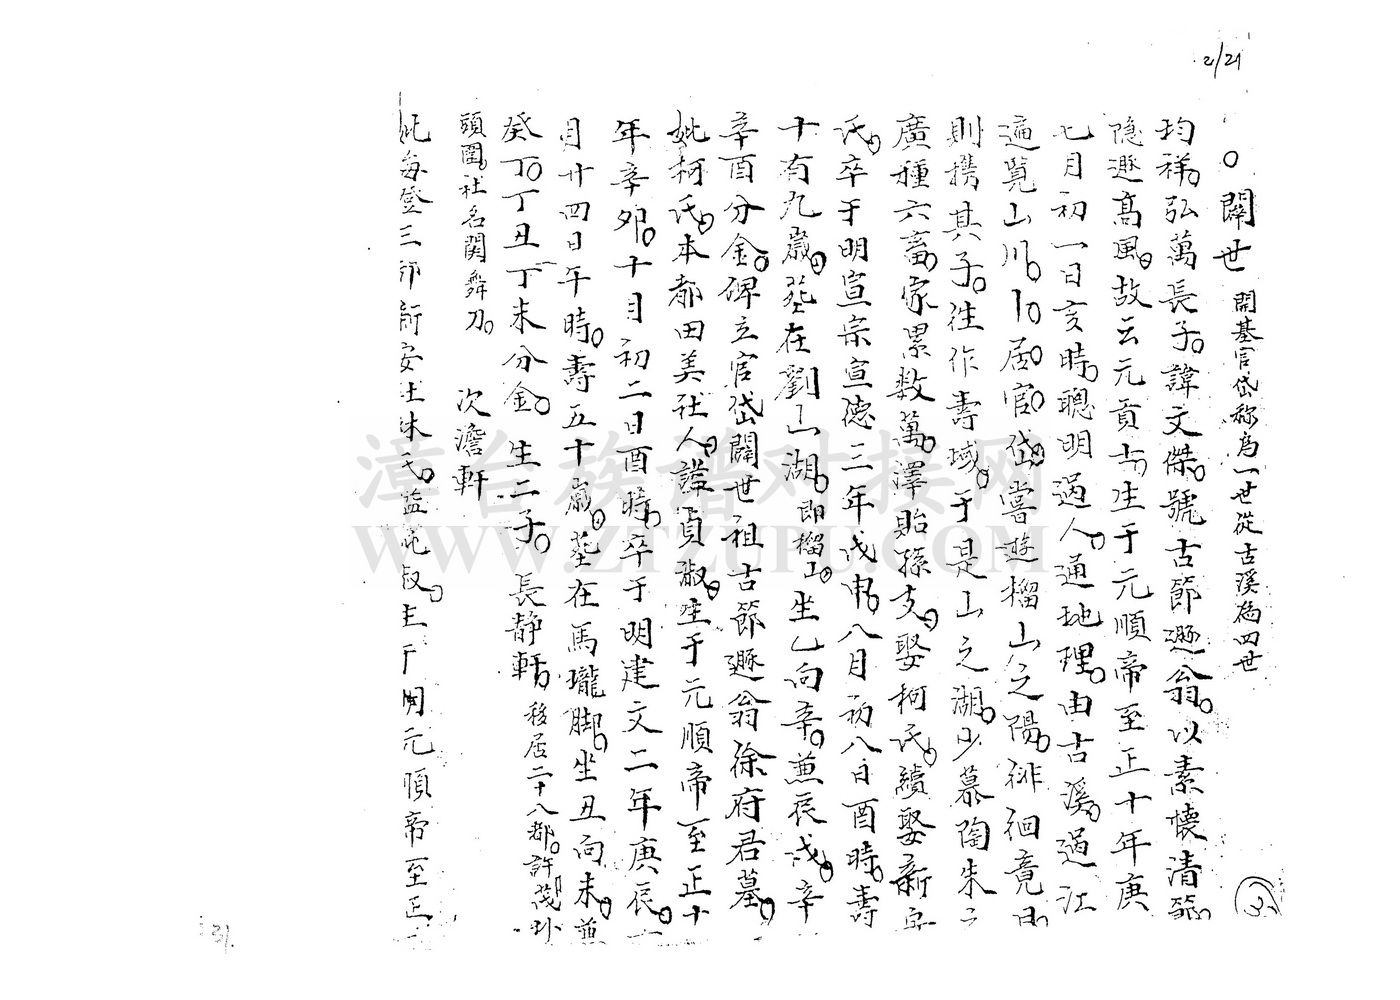 2/21
○闢世 開基官岱称為一世從古溪為四世
均祥。弘萬長子。諱文傑。號古節遯翁。以素懷清節。
隱遯高風。故云元貢士。生于元順帝至正十年庚
七月初一日亥時。聰明過人。通地理。由古溪。過江
遍覽山川。卜居官岱。嘗遊榴山之陽。徘徊竟日
則携其子。往作壽域。于是山之湖。少慕陶朱
廣種六畜。家累数萬。澤貽孫支。娶柯氏。續娶新
氏。卒于明宣宗宣德三年戊申。八月初八日酉時。壽
十有九歲。葬在劉山湖。即榴山。坐乙向辛。兼辰戌。辛
辛酉分金。碑立官岱闢世祖古節遯翁徐府君墓。
妣柯氏。本都田美社人。諡貞淑。生于元順帝至正十
年辛卯。十月初二日酉時。卒于明建文二年庚辰。
月廿四日午時。壽五十歲。葬在馬瓏脚。坐丑向未。兼
癸丁。丁丑丁未分金。生二子。長靜軒。移居二十八都。許茂圤
頭圍。社名関舞刀。 次澹軒
妣每登三都新安社林氏。諡 淑。生于 元順帝至正
31.